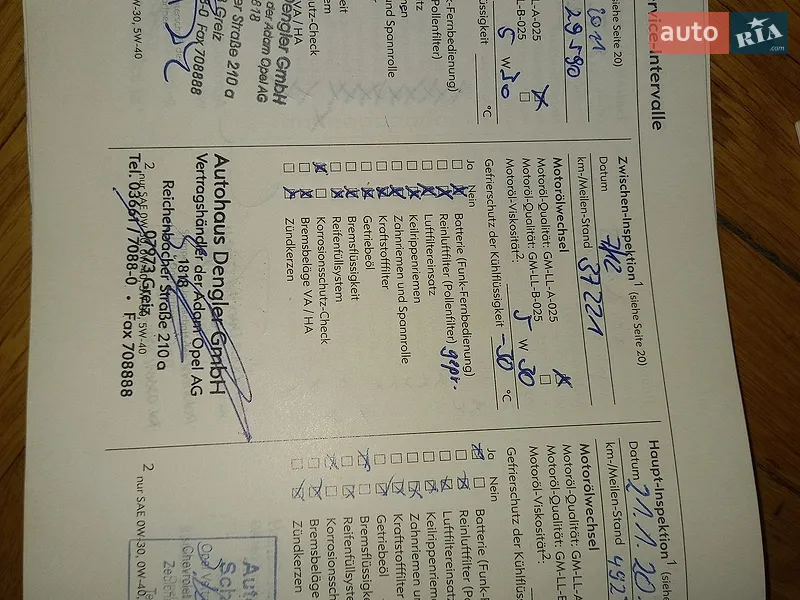 auto RIA .com
Service-Intervalle
(siehe Seite 20)
2011
29590
L-A-025
L-B-025
5 W 30
°C
k-Fernbedienung)
(Pollenfilter)
nd Spannrolle
utz-Check
VA / HA
Dengler GmbH
der Adam Opel AG
er Straße 210 a
Greiz
-0 Fax 708888
W-30, 5W-40
Zwischen-Inspektion¹ (siehe Seite 20)
Datum 7/12
km-/Meilen-Stand 37221
Motorölwechsel
Motoröl-Qualität: GM-LL-A-025
Motoröl-Qualität: GM-LL-B-025
Motoröl-Viskosität²: 5 W 30
Gefrierschutz der Kühlflüssigkeit -30 °C
Ja Nein
Batterie (Funk-Fernbedienung)
Reinluftfilter (Pollenfilter) gepr.
Luftfiltereinsatz
Keilrippenriemen
Zahnriemen und Spannrolle
Kraftstofffilter
Getriebeöl
Bremsflüssigkeit
Reifenfüllsystem
Korrosionsschutz-Check
Bremsbeläge VA / HA
Zündkerzen
Autohaus Dengler GmbH
Vertragshändler der Adam Opel AG
1818
Reichenbacher Straße 210 a
07973 Greiz
2 nur SAE 0W-30, 5W-40
Tel. 03661 / 7088-0 • Fax 708888
Haupt-Inspektion¹ (siehe
Datum 21.1.20
km-/Meilen-Stand 492
Motorölwechsel
Motoröl-Qualität: GM-LL-A
Motoröl-Qualität: GM-LL-B
Motoröl-Viskosität²:
Gefrierschutz der Kühlflüss
Ja Nein
Batterie (Funk-F
Reinluftfilter (Po
Luftfiltereinsatz
Keilrippenriemen
Zahnriemen und
Kraftstofffilter
Getriebeöl
Bremsflüssigkei
Reifenfüllsystem
Korrosionssch
Bremsbeläge
Zündkerzen
Aut
Sch
Opel
Chevrolet
2 nur SAE 0W-30, 0W-40,